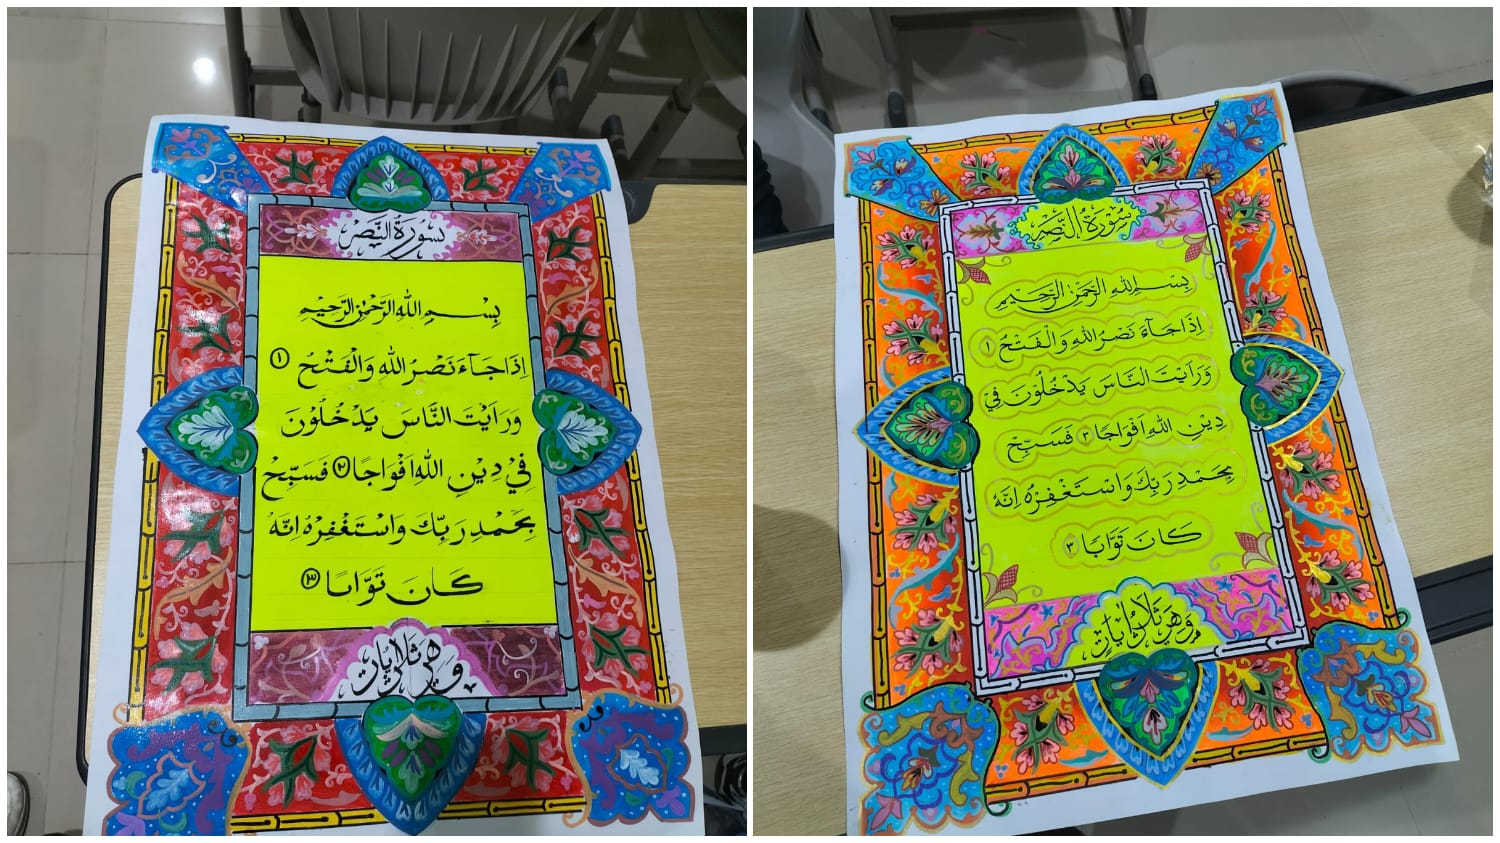 سُورَةُ النَّصْر
بِسْــمِ اللهِ الرَّحْمٰنِ الرَّحِيْمِ
اِذَا جَآءَ نَصْرُ اللهِ وَالْفَتْحُ ١
وَرَاَيْتَ النَّاسَ يَدْخُلُوْنَ
فِيْ دِيْنِ اللهِ اَفْوَاجًا ٢ فَسَبِّحْ
بِحَمْدِ رَبِّكَ وَاسْتَغْفِرْهُ اِنَّهٗ
كَانَ تَوَّابًا ٣
وَهِيَ ثَلَاثُ اٰيَات
سُوْرَةُ النَّصْر
بِسْــمِ اللهِ الرَّحْمٰنِ الرَّحِيْمِ
اِذَا جَآءَ نَصْرُ اللهِ وَالْفَتْحُ ١
وَرَاَيْتَ النَّاسَ يَدْخُلُوْنَ فِيْ
دِيْنِ اللهِ اَفْوَاجًا ٢ فَسَبِّحْ
بِحَمْدِ رَبِّكَ وَاسْتَغْفِرْهُ اِنَّهٗ
كَانَ تَوَّابًا ٣
وَهِيَ ثَلَاثُ اٰيَات